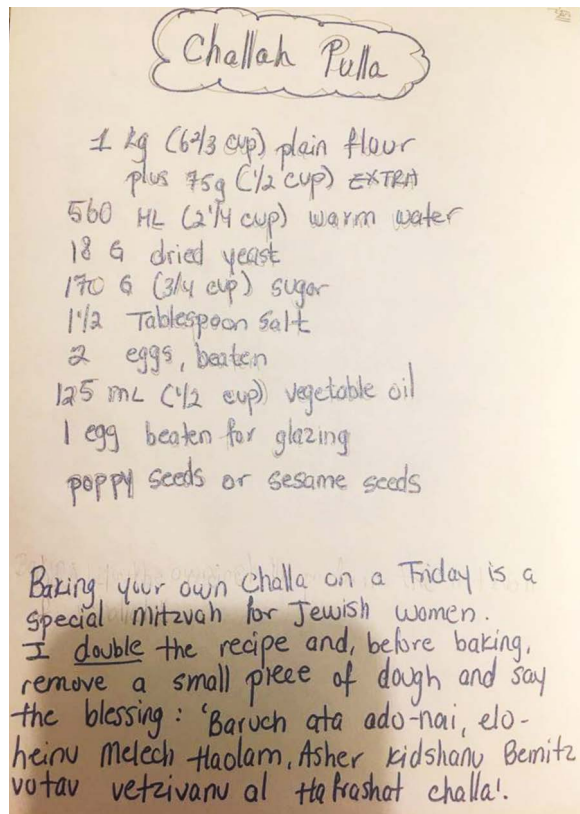 Challah Pulla
1 kg (6 2/3 cup) plain flour
plus 75g (1/2 cup) EXTRA
560 ML (2 1/4 cup) warm water
18 G dried yeast
170 G (3/4 cup) sugar
1 1/2 Tablespoon Salt
2 eggs, beaten
125 mL (1/2 cup) vegetable oil
1 egg beaten for glazing
poppy seeds or sesame seeds
Baking your own Challa on a Friday is a
special mitzvah for Jewish women.
I double the recipe and, before baking,
remove a small piece of dough and say
the blessing: 'Baruch ata ado-nai, elo-
heinu Melech Haolam, Asher kidshanu Bemitz
votav vetzivanu al Hafrashat challa'.